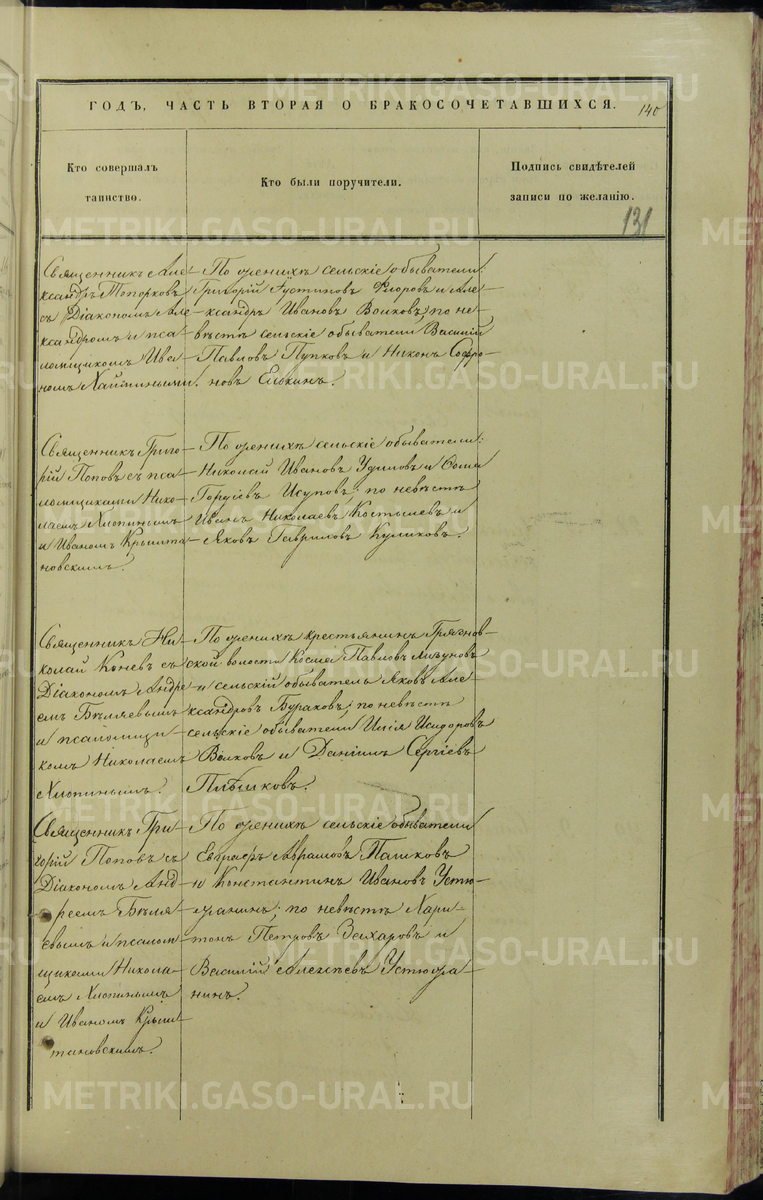 ГОДЪ, ЧАСТЬ ВТОРАЯ О БРАКОСОЧЕТАВШИХСЯ.
140
Кто совершалъ
таинство.
Кто были поручители.
Подпись свидѣтелей
записи по желанію.
131
Священникъ Але-
ксандръ Топорковъ
съ Діакономъ Але-
ксандромъ и пса-
ломщикомъ Ива-
номъ
По женихѣ сельскіе обыватели:
Григорій Іустиновъ Флоровъ и Але-
ксандръ Ивановъ Волковъ; по не-
вѣстѣ сельскіе обыватели Василій
Павловъ Пупковъ и Никонъ Софро-
новъ
Священникъ Григо-
рій Поповъ съ пса-
ломщиками Нико-
лаемъ Хлопинымъ
и Иваномъ Крыжта-
новскимъ.
По женихѣ сельскіе обыватели:
Николай Ивановъ и Ѳома
Гордіевъ Исуповъ; по невѣстѣ
Иванъ Николаевъ Костылевъ и
Яковъ Гавриловъ Куликовъ.
Священникъ Ни-
колай съ
Діакономъ Андре-
емъ Бѣляевымъ
и псаломщи-
комъ Николаемъ
Хлопинымъ.
По женихѣ крестьянинъ Грязнов-
ской волости Косма Павловъ
и сельскій обыватель Яковъ Але-
ксандровъ Бураковъ; по невѣстѣ
сельскіе обыватели Илія Исидоровъ
Волковъ и Даніилъ Сергіевъ
Священникъ Гри-
горій Поповъ съ
Діакономъ Анд-
реемъ Бѣля-
евымъ и псалом-
щиками Никола-
емъ Хлопинымъ
и Иваномъ Крыж-
тановскимъ.
По женихѣ сельскіе обыватели
Евграфъ Абрамовъ Пашковъ
и Константинъ Ивановъ Устю-
жанинъ; по невѣстѣ Хари-
тонъ Петровъ Захаровъ и
Василій Алексѣевъ Устюжа-
нинъ.
METRIKI.GASO-URAL.RU